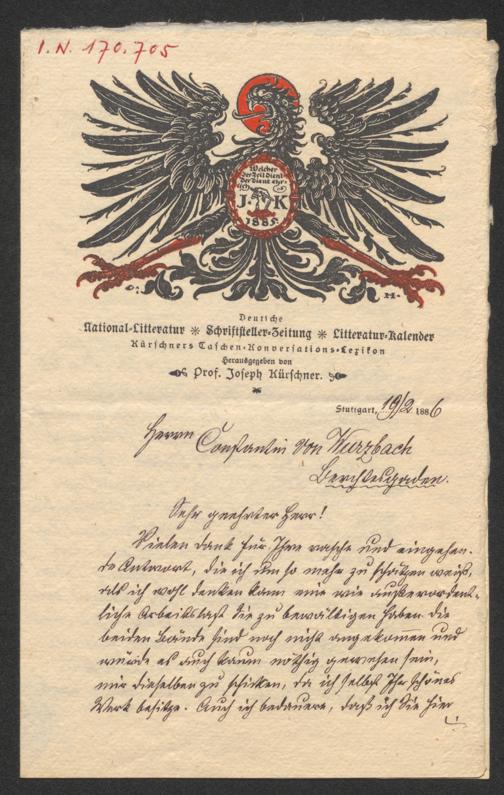 I.N. 170.705
Welcher
der Zeit dient
der dient ehr-
J K
1885
O: H.
Deutsche
National-Litteratur ✻ Schriftsteller-Zeitung ✻ Litteratur-Kalender
Kürschners Taschen-Konversations-Lexikon
Herausgegeben von
Prof. Joseph Kürschner.
Stuttgart, 19/2 1886
Herrn Constantin von Wurzbach
Berchtesgaden.
Sehr geehrter Herr!
Vielen Dank für Ihre rasche und eingehen-
de Antwort, die ich um so mehr zu schätzen weiß,
als ich wohl denken kann eine wie außerordent-
liche Arbeitslast Sie zu bewältigen haben. Die
beiden Bände sind noch nicht angekommen und
würde es auch kaum nöthig gewesen sein,
mir dieselben zu schicken, da ich selbst Ihr schönes
Werk besitze. Auch ich bedauere, daß ich Sie hier